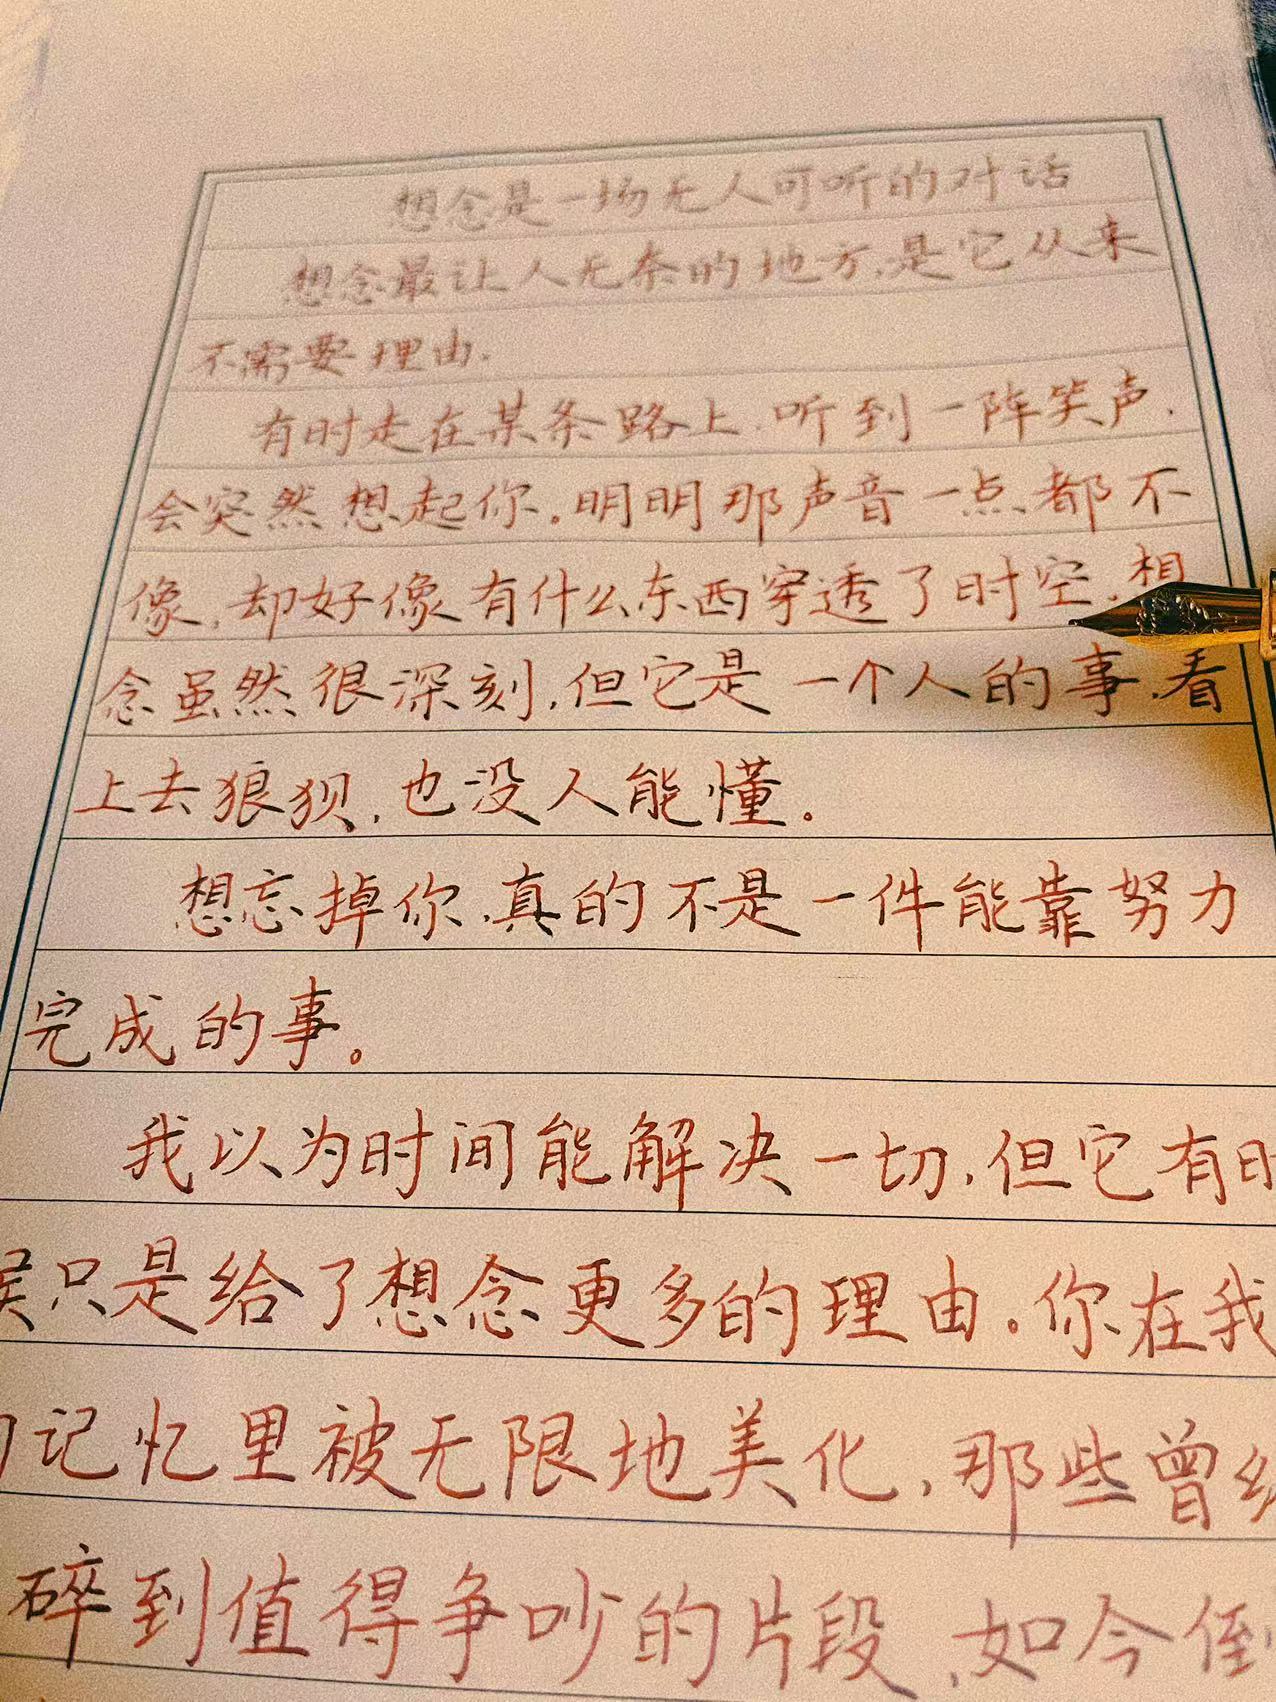 想念是一场无人可听的对话
想念最让人无奈的地方,是它从来
不需要理由.
有时走在某条路上,听到一阵笑声,
会突然想起你。明明那声音一点都不
像,却好像有什么东西穿透了时空,想
念虽然很深刻,但它是一个人的事,看
上去狼狈,也没人能懂。
想忘掉你,真的不是一件能靠努力
完成的事。
我以为时间能解决一切,但它有时
候只是给了想念更多的理由。你在我
的记忆里被无限地美化,那些曾
碎到值得争吵的片段,如今